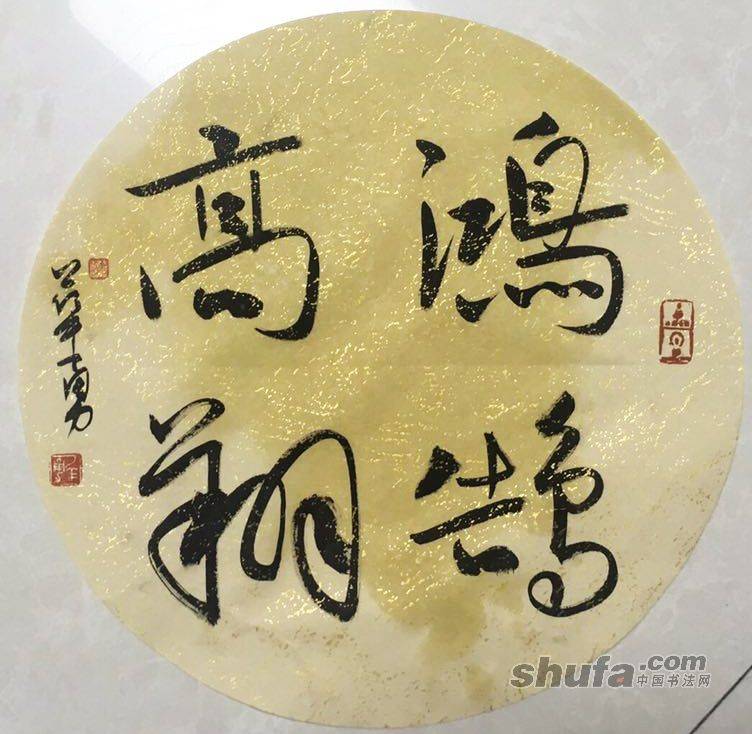 鸿鹄
高翔
shufa.com
中国书法网